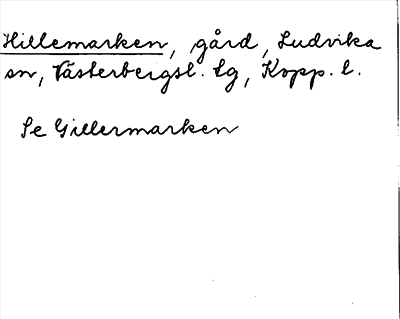 Hillemarken, gård, Ludvika
sn, Västerbergsl. lg, Kopp. l.
Se Gillermarken